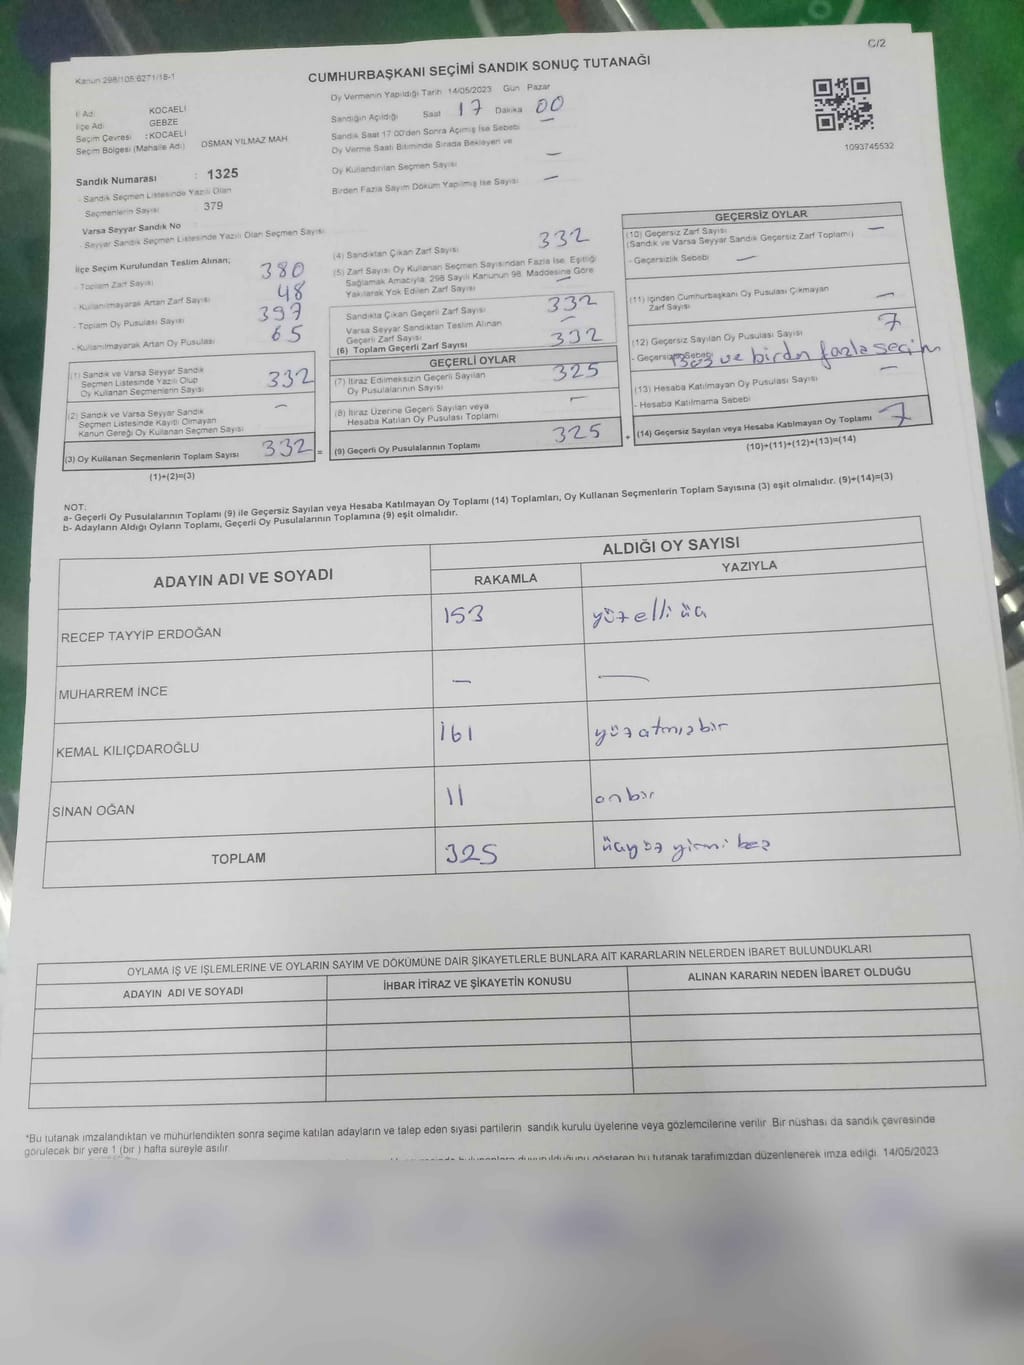 C/2
Kanun 298/105;6271/18-1
CUMHURBAŞKANI SEÇİMİ SANDIK SONUÇ TUTANAĞI
İl Adı KOCAELİ
İlçe Adı GEBZE
Seçim Çevresi : KOCAELİ
Seçim Bölgesi (Mahalle Adı) OSMAN YILMAZ MAH
Sandık Numarası : 1325
- Sandık Seçmen Listesinde Yazılı Olan
Seçmenlerin Sayısı 379
Varsa Seyyar Sandık No
- Seyyar Sandık Seçmen Listesinde Yazılı Olan Seçmen Sayısı
İlçe Seçim Kurulundan Teslim Alınan;
- Toplam Zarf Sayısı 380
- Kullanılmayarak Artan Zarf Sayısı 48
- Toplam Oy Pusulası Sayısı 397
- Kullanılmayarak Artan Oy Pusulası 65
(1) Sandık ve Varsa Seyyar Sandık
Seçmen Listesinde Yazılı Olup
Oy Kullanan Seçmenlerin Sayısı 332
(2) Sandık ve Varsa Seyyar Sandık
Seçmen Listesinde Kayıtlı Olmayan
Kanun Gereği Oy Kullanan Seçmen Sayısı –
(3) Oy Kullanan Seçmenlerin Toplam Sayısı 332 =
(1)+(2)=(3)
Oy Vermenin Yapıldığı Tarih 14/05/2023 Gün Pazar
Sandığın Açıldığı Saat 17 Dakika 00
Sandık Saat 17 00'den Sonra Açılmış İse Sebebi –
Oy Verme Saati Bitiminde Sırada Bekleyen ve
Oy Kullandırılan Seçmen Sayısı –
Birden Fazla Sayım Döküm Yapılmış İse Sayısı –
(4) Sandıktan Çıkan Zarf Sayısı 332
(5) Zarf Sayısı Oy Kullanan Seçmen Sayısından Fazla İse, Eşitliği
Sağlamak Amacıyla; 298 Sayılı Kanunun 98. Maddesine Göre
Yakılarak Yok Edilen Zarf Sayısı –
Sandıkta Çıkan Geçerli Zarf Sayısı 332
Varsa Seyyar Sandıktan Teslim Alınan
Geçerli Zarf Sayısı –
(6) Toplam Geçerli Zarf Sayısı 332
GEÇERLİ OYLAR
(7) İtiraz Edilmeksizin Geçerli Sayılan
Oy Pusulalarının Sayısı 325
(8) İtiraz Üzerine Geçerli Sayılan veya
Hesaba Katılan Oy Pusulası Toplamı –
(9) Geçerli Oy Pusulalarının Toplamı 325 +
1093745532
GEÇERSİZ OYLAR
(10) Geçersiz Zarf Sayısı –
(Sandık ve Varsa Seyyar Sandık Geçersiz Zarf Toplamı)
- Geçersizlik Sebebi –
(11) İçinden Cumhurbaşkanı Oy Pusulası Çıkmayan
Zarf Sayısı –
(12) Geçersiz Sayılan Oy Pusulası Sayısı 7
- Geçersizlik Sebebi Boş ve birden fazla seçim
(13) Hesaba Katılmayan Oy Pusulası Sayısı –
- Hesaba Katılmama Sebebi
(14) Geçersiz Sayılan veya Hesaba Katılmayan Oy Toplamı 7
(10)+(11)+(12)+(13)=(14)
NOT:
a- Geçerli Oy Pusulalarının Toplamı (9) ile Geçersiz Sayılan veya Hesaba Katılmayan Oy Toplamı (14) Toplamları, Oy Kullanan Seçmenlerin Toplam Sayısına (3) eşit olmalıdır. (9)+(14)=(3)
b- Adayların Aldığı Oyların Toplamı, Geçerli Oy Pusulalarının Toplamına (9) eşit olmalıdır.
ADAYIN ADI VE SOYADI
ALDIĞI OY SAYISI
RAKAMLA YAZIYLA
RECEP TAYYİP ERDOĞAN 153 yüzelli üç
MUHARREM İNCE – –
KEMAL KILIÇDAROĞLU 161 yüz atmış bir
SİNAN OĞAN 11 onbir
TOPLAM 325 üçyüz yirmi beş
OYLAMA İŞ VE İŞLEMLERİNE VE OYLARIN SAYIM VE DÖKÜMÜNE DAİR ŞİKAYETLERLE BUNLARA AİT KARARLARIN NELERDEN İBARET BULUNDUKLARI
ADAYIN ADI VE SOYADI İHBAR İTİRAZ VE ŞİKAYETİN KONUSU ALINAN KARARIN NEDEN İBARET OLDUĞU
*Bu tutanak imzalandıktan ve mühürlendikten sonra seçime katılan adayların ve talep eden siyasi partilerin sandık kurulu üyelerine veya gözlemcilerine verilir. Bir nüshası da sandık çevresinde
görülecek bir yere 1 (bir) hafta süreyle asılır.
bulunanlara duyurulduğunu gösteren bu tutanak tarafımızdan düzenlenerek imza edildi. 14/05/2023